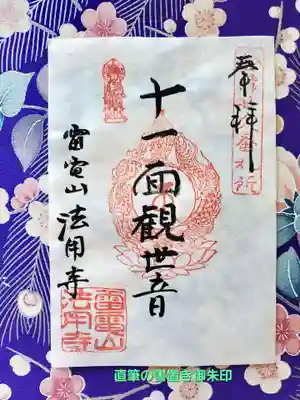 奉拝
十一面觀世音
雷電山 法用寺
雷電山
法用寺
直筆の書置き御朱印